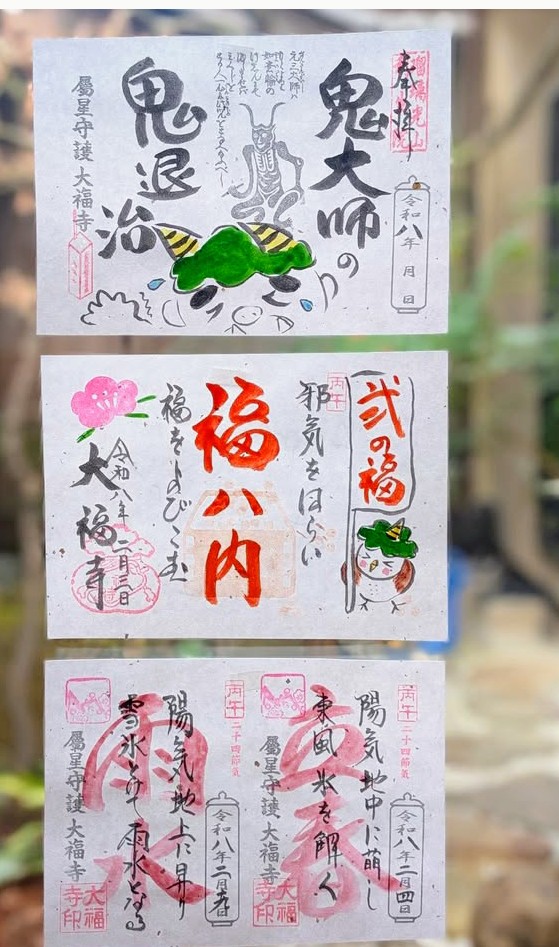 奉拝
令和八年 月 日
鬼大師の
鬼退治
屬星守護 大福寺
弐の福
丙午
邪気をはらい
福ハ内
福をよびこむ
令和八年二月三日
大福寺
丙午
二十四節気
令和八年二月四日
立春
陽気地中に萌し
東風氷を解く
屬星守護 大福寺
大福寺印
丙午
二十四節気
雨水
陽気地上に昇り
雪氷とけて雨水となる
屬星守護 大福寺
大福寺印